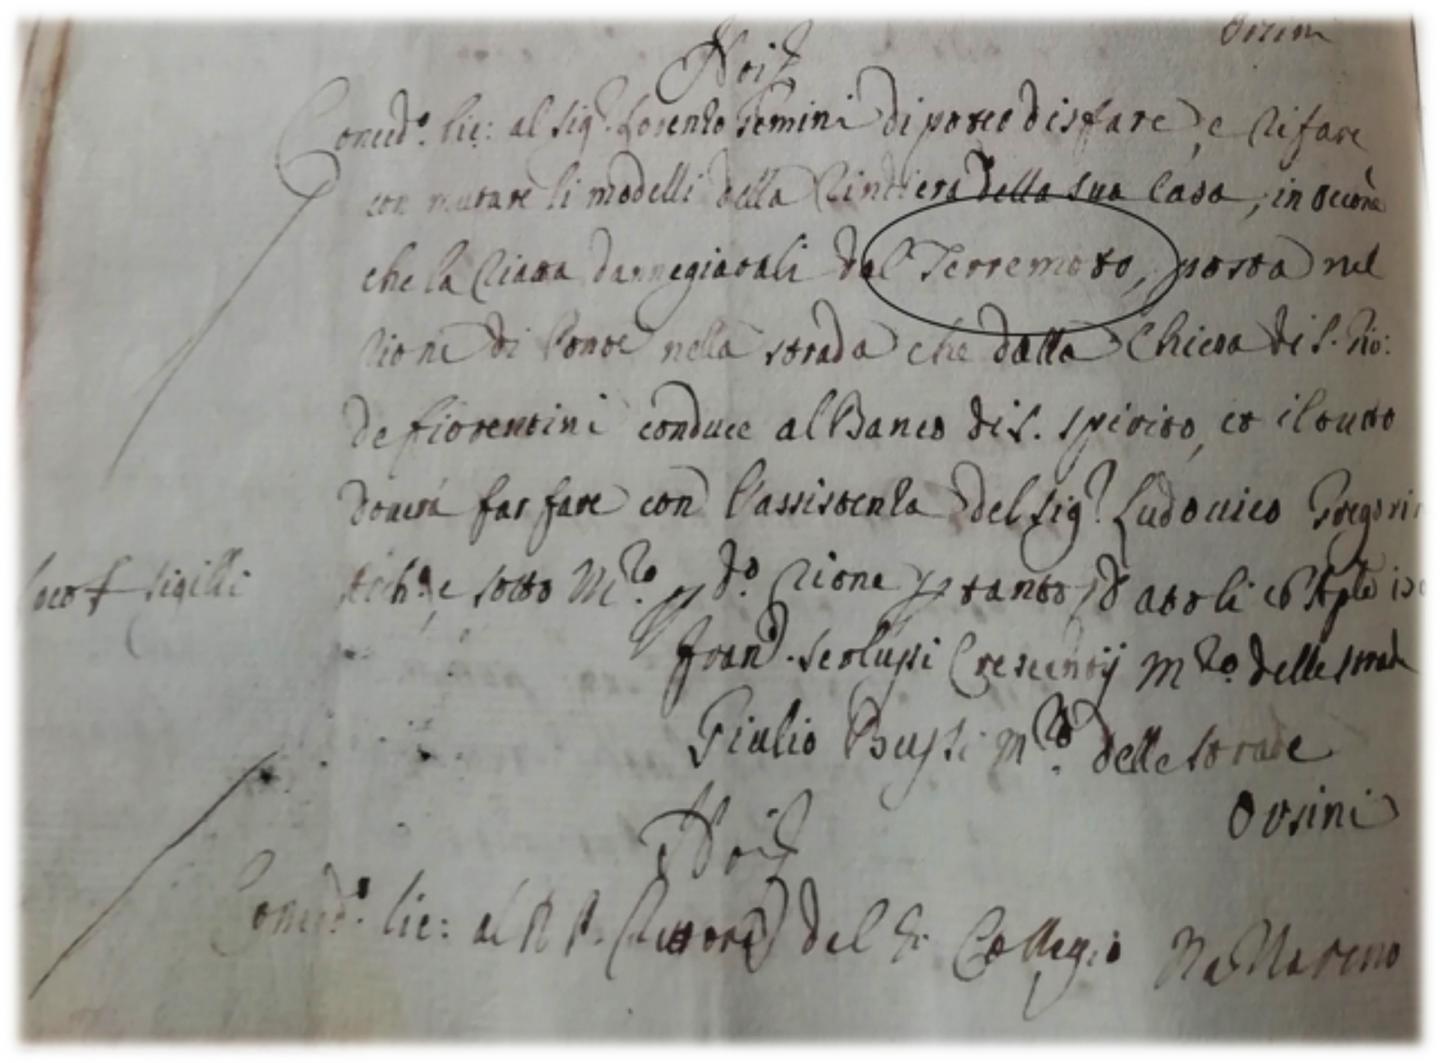 Orsini
Noi
Conced.º lic: al Sig.r Lorenzo Gemini di poter disfare, e rifare
con mutare li modelli della Ringhiera della sua Casa, in occõne
che la danneggiatali dal Terremoto, posta nel
rione di Ponte nella strada che dalla Chiesa di S. Gio:
de fiorentini conduce al Banco di S. Spirito, et il tutto
dovera far fare con l'assistenza del Sig.r Ludovico Gregorini
Arch.º, e sotto M.ro p d.º rione p tanto
loco + sigilli
Fran.º Serlupi Crescentij M.ro delle strade
Giulio Bussi M.ro delle strade
Orsini
Noi
Conced.º lic: al R. P. Rettore del Collegio Nazareno